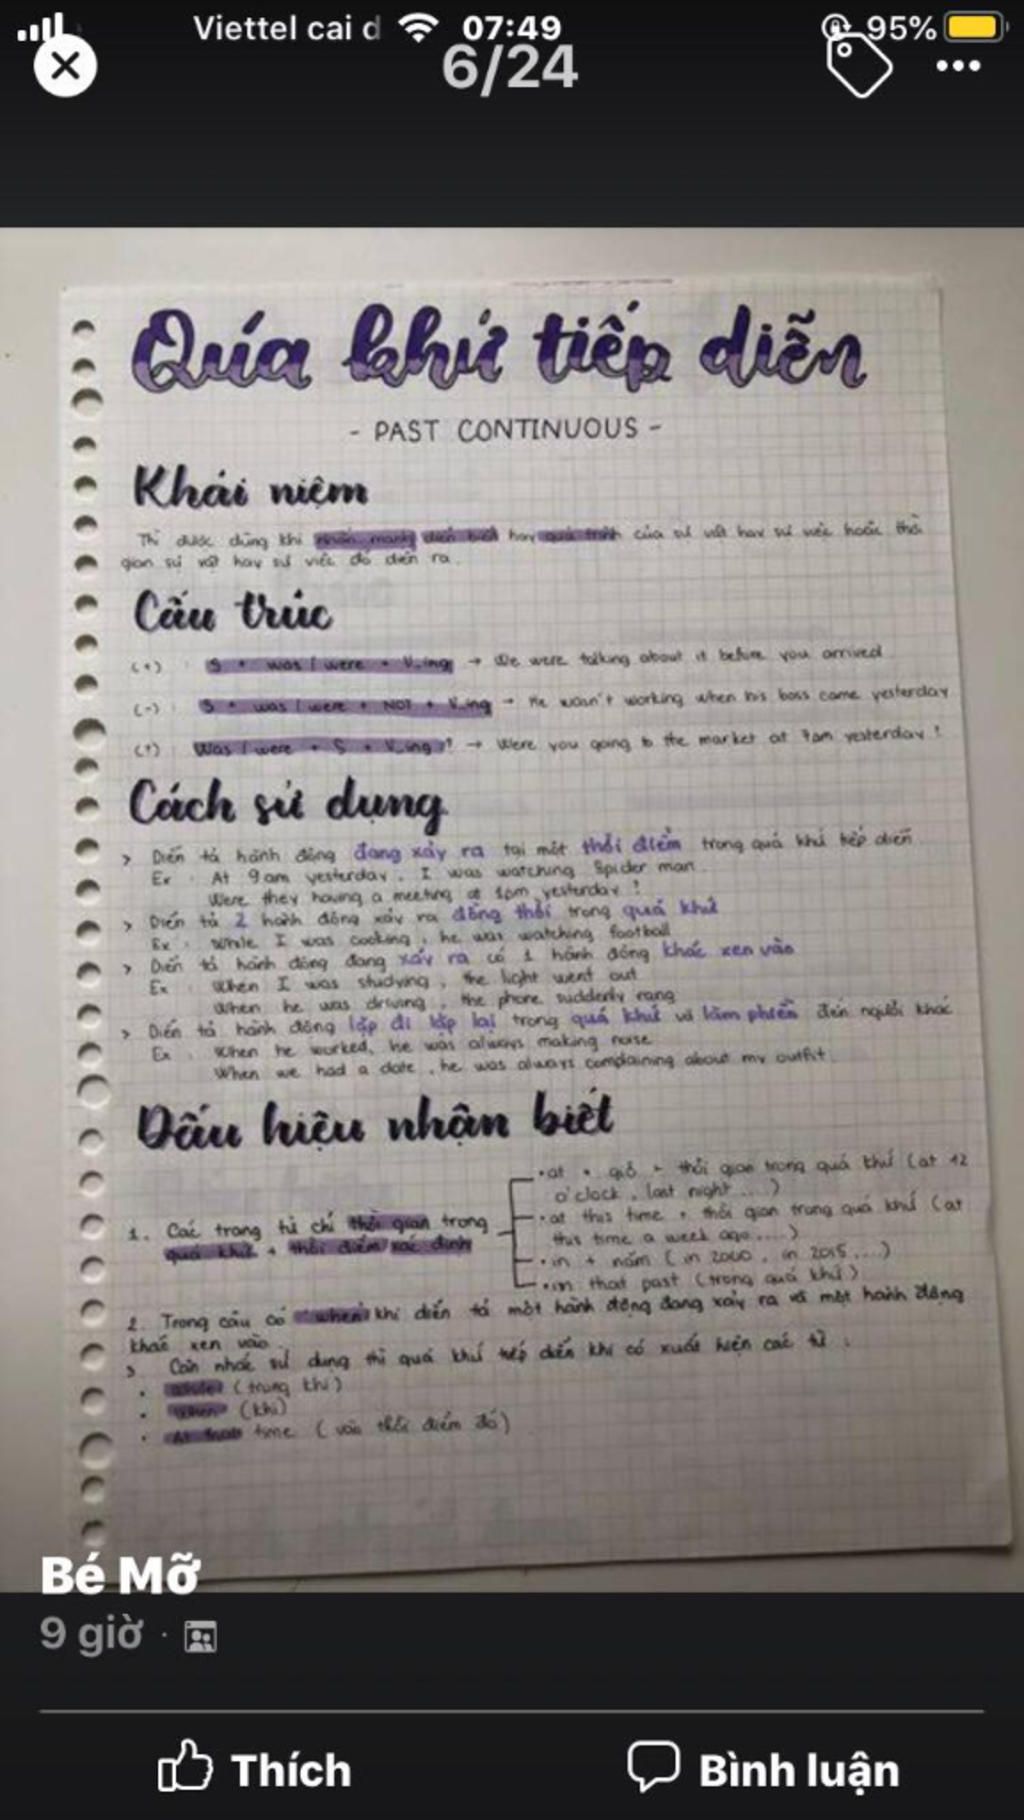 Viettel cai d 07:49 95%
6/24
Qúa khứ tiếp diễn
- PAST CONTINUOUS -
Khái niệm
Thì được dùng khi nhấn mạnh diễn biến hay quá trình của sự vật hay sự việc hoặc thời
gian sự vật hay sự việc đó diễn ra.
Cấu trúc
(+) : S + was / were + V_ing → We were talking about it before you arrived
(-) : S + was / were + NOT + V_ing → He wasn't working when his boss came yesterday
(?) Was / were + S + V_ing? → Were you going to the market at 7am yesterday?
Cách sử dụng
> Diễn tả hành động đang xảy ra tại một thời điểm trong quá khứ tiếp diễn
Ex : At 9am yesterday, I was watching Spider man
Were they having a meeting at 1pm yesterday?
> Diễn tả 2 hành động xảy ra đồng thời trong quá khứ
Ex : While I was cooking, he was watching football
> Diễn tả hành động đang xảy ra có 1 hành động khác xen vào
Ex : When I was studying, the light went out
When he was driving, the phone suddenly rang
> Diễn tả hành động lặp đi lặp lại trong quá khứ và làm phiền đến người khác
Ex : When he worked, he was always making noise
When we had a date, he was always complaining about my outfit
Dấu hiệu nhận biết
1. Các trạng từ chỉ thời gian trong
quá khứ + thời điểm xác định
• at + giờ + thời gian trong quá khứ (at 12
o'clock, last night ....)
• at this time + thời gian trong quá khứ (at
this time a week ago ....)
• in + năm (in 2000, in 2015 ...)
• in that past (trong quá khứ)
2. Trong câu có "when" khi diễn tả một hành động đang xảy ra và một hành động
khác xen vào.
3. Cân nhắc sử dụng thì quá khứ tiếp diễn khi có xuất hiện các từ :
• (trong khi)
• When (khi)
• At that time (vào thời điểm đó)
Bé Mỡ
9 giờ ·
Thích
Bình luận